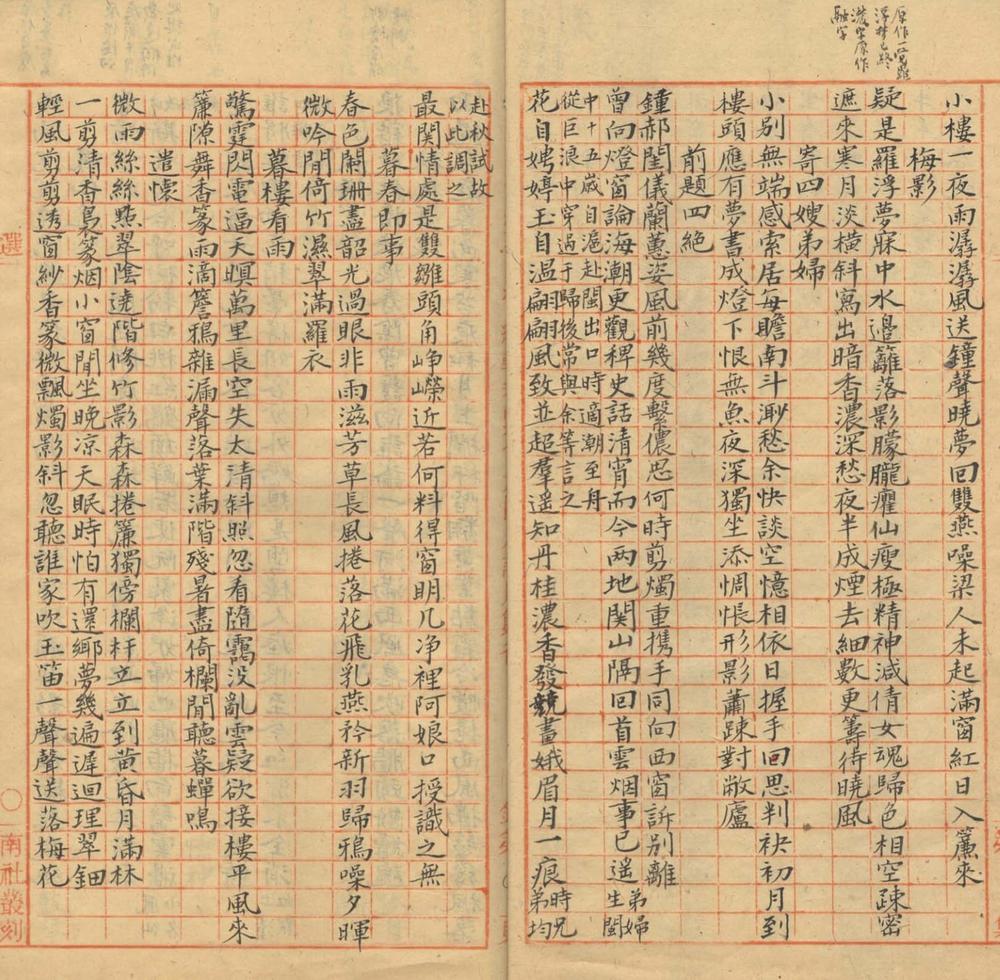 原作一笑難
浮梦已終
濃字原作
融字
小樓一夜雨潺潺風送鐘聲曉夢回雙燕噪梁人未起滿窗紅日入簾來
梅影
疑是羅浮夢寐中水邊籬落影朦朧癯仙瘦極精神減倩女魂歸色相空踈密
遮來寒月淡橫斜寫出暗香濃深愁夜半成煙去細數更籌待曉風
寄四嫂弟婦
小別無端感索居每瞻南斗渺愁余快談空憶相依日握手回思判袂初月到
樓頭應有夢書成燈下恨無魚夜深獨坐添惆悵形影蕭踈對敝廬
前題四絕
鍾郝閨儀蘭蕙姿風前幾度繫儂思何時剪燭重攜手同向西窗訴別離
曾向燈窗論海潮更觀稗史話清宵而今兩地関山隔回首雲烟事已遙弟婦生閩
中十五歲自滬赴閩出口時適潮至舟
從巨浪中穿過于歸後常與余等言之
花自娉婷玉自溫翩翩風致並超羣遥知丹桂濃香發競畫娥眉月一痕時兄弟均
赴秋試故
以此調之
最関情處是雙雛頭角崢嶸近若何料得窗明几净裡阿娘口授識之無
暮春即事
春色闌珊盡韶光過眼非雨滋芳草長風捲落花飛乳燕矜新羽歸鴉噪夕暉
微吟閒倚竹濕翠滿羅衣
暮樓看雨
驚霆閃電逼天暝萬里長空失太清斜照忽看隨靄没亂雲疑欲接樓平風來
簾隙舞香篆雨滴簷鴉雜漏聲落葉滿階殘暑盡倚欄閒聽暮蟬鳴
遣懷
微雨絲絲點翠陰遶階修竹影森森捲簾獨傍欄杆立立到黃昏月滿林
一剪清香鳥篆烟小窗閒坐晚凉天眠時怕有還鄉夢幾遍遲迴理翠鈿
輕風剪剪透窗紗香篆微飄燭影斜忽聽誰家吹玉笛一聲聲送落梅花
選
〇
南社叢刻